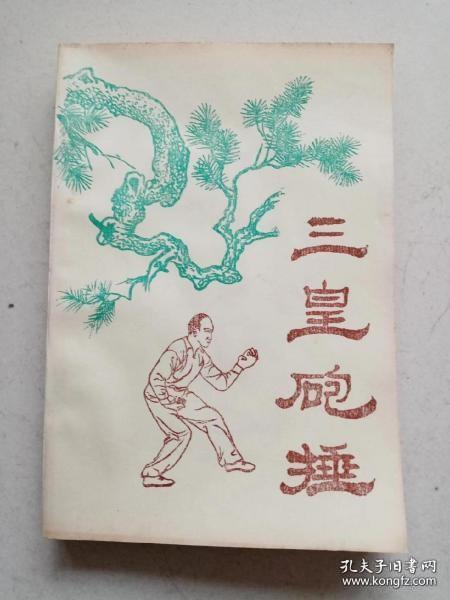 三皇砲捶
孔夫子旧书网
www.kongfz.com